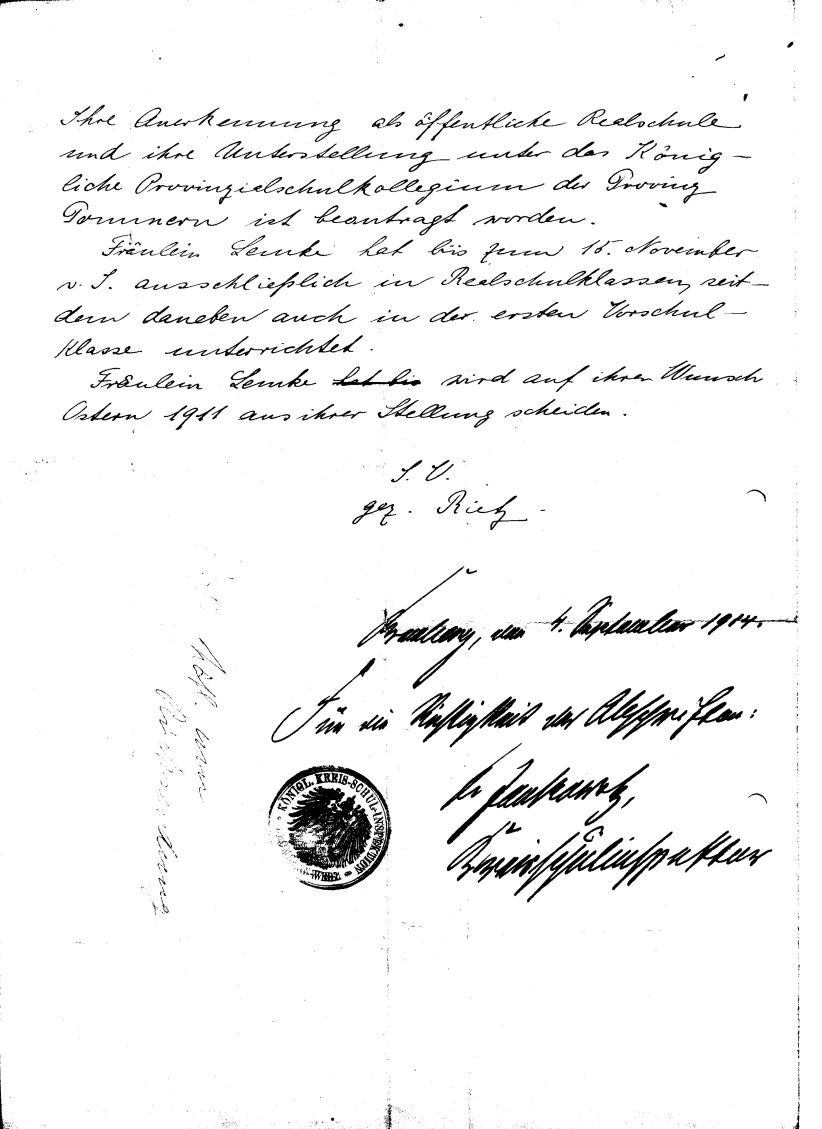 Ihre Anerkennung als öffentliche Realschule
und ihre Unterstellung unter das König-
liche Provinzialschulkollegium der Provinz
Pommern ist beantragt worden.
Fräulein Lemke hat bis zum 15. November
v. J. ausschließlich in Realschulklassen, seit-
dem daneben auch in der ersten Vorschul-
klasse unterrichtet.
Fräulein Lemke hat bis wird auf ihren Wunsch
Ostern 1911 aus ihrer Stellung scheiden.
I. V.
gez. Rietz.
Bromberg, den 4. September 1914.
Für die Richtigkeit der Abschriften:
Kreisschulinspektor
KÖNIGL. KREIS-SCHUL-INSPEKTION